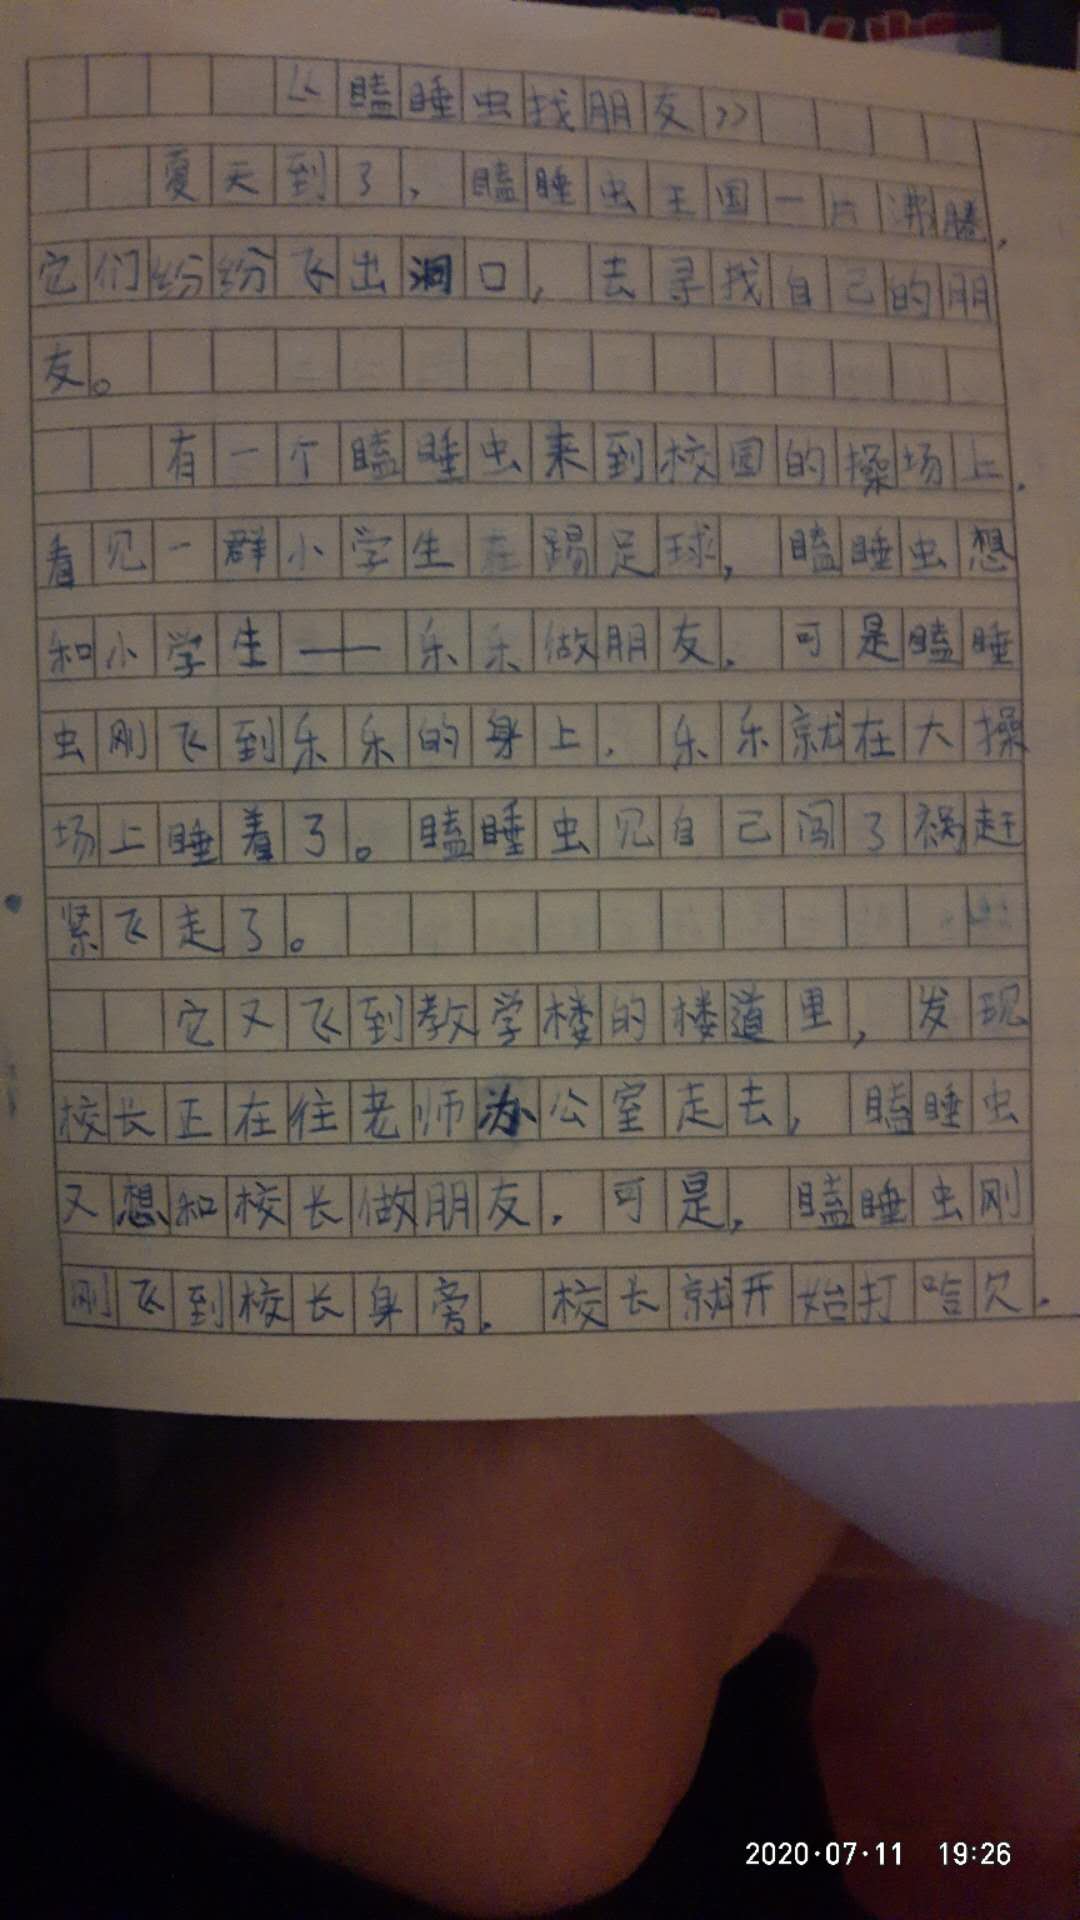 《瞌睡虫找朋友》
夏天到了，瞌睡虫王国一片沸腾，
它们纷纷飞出洞口，去寻找自己的朋
友。
有一个瞌睡虫来到校园的操场上，
看见一群小学生在踢足球，瞌睡虫想
和小学生——乐乐做朋友，可是瞌睡
虫刚飞到乐乐的身上，乐乐就在大操
场上睡着了。瞌睡虫见自己闯了祸赶
紧飞走了。
它又飞到教学楼的楼道里，发现
校长正在往老师办公室走去，瞌睡虫
又想和校长做朋友，可是，瞌睡虫刚
刚飞到校长身旁，校长就开始打哈欠，
2020·07·11 19:26